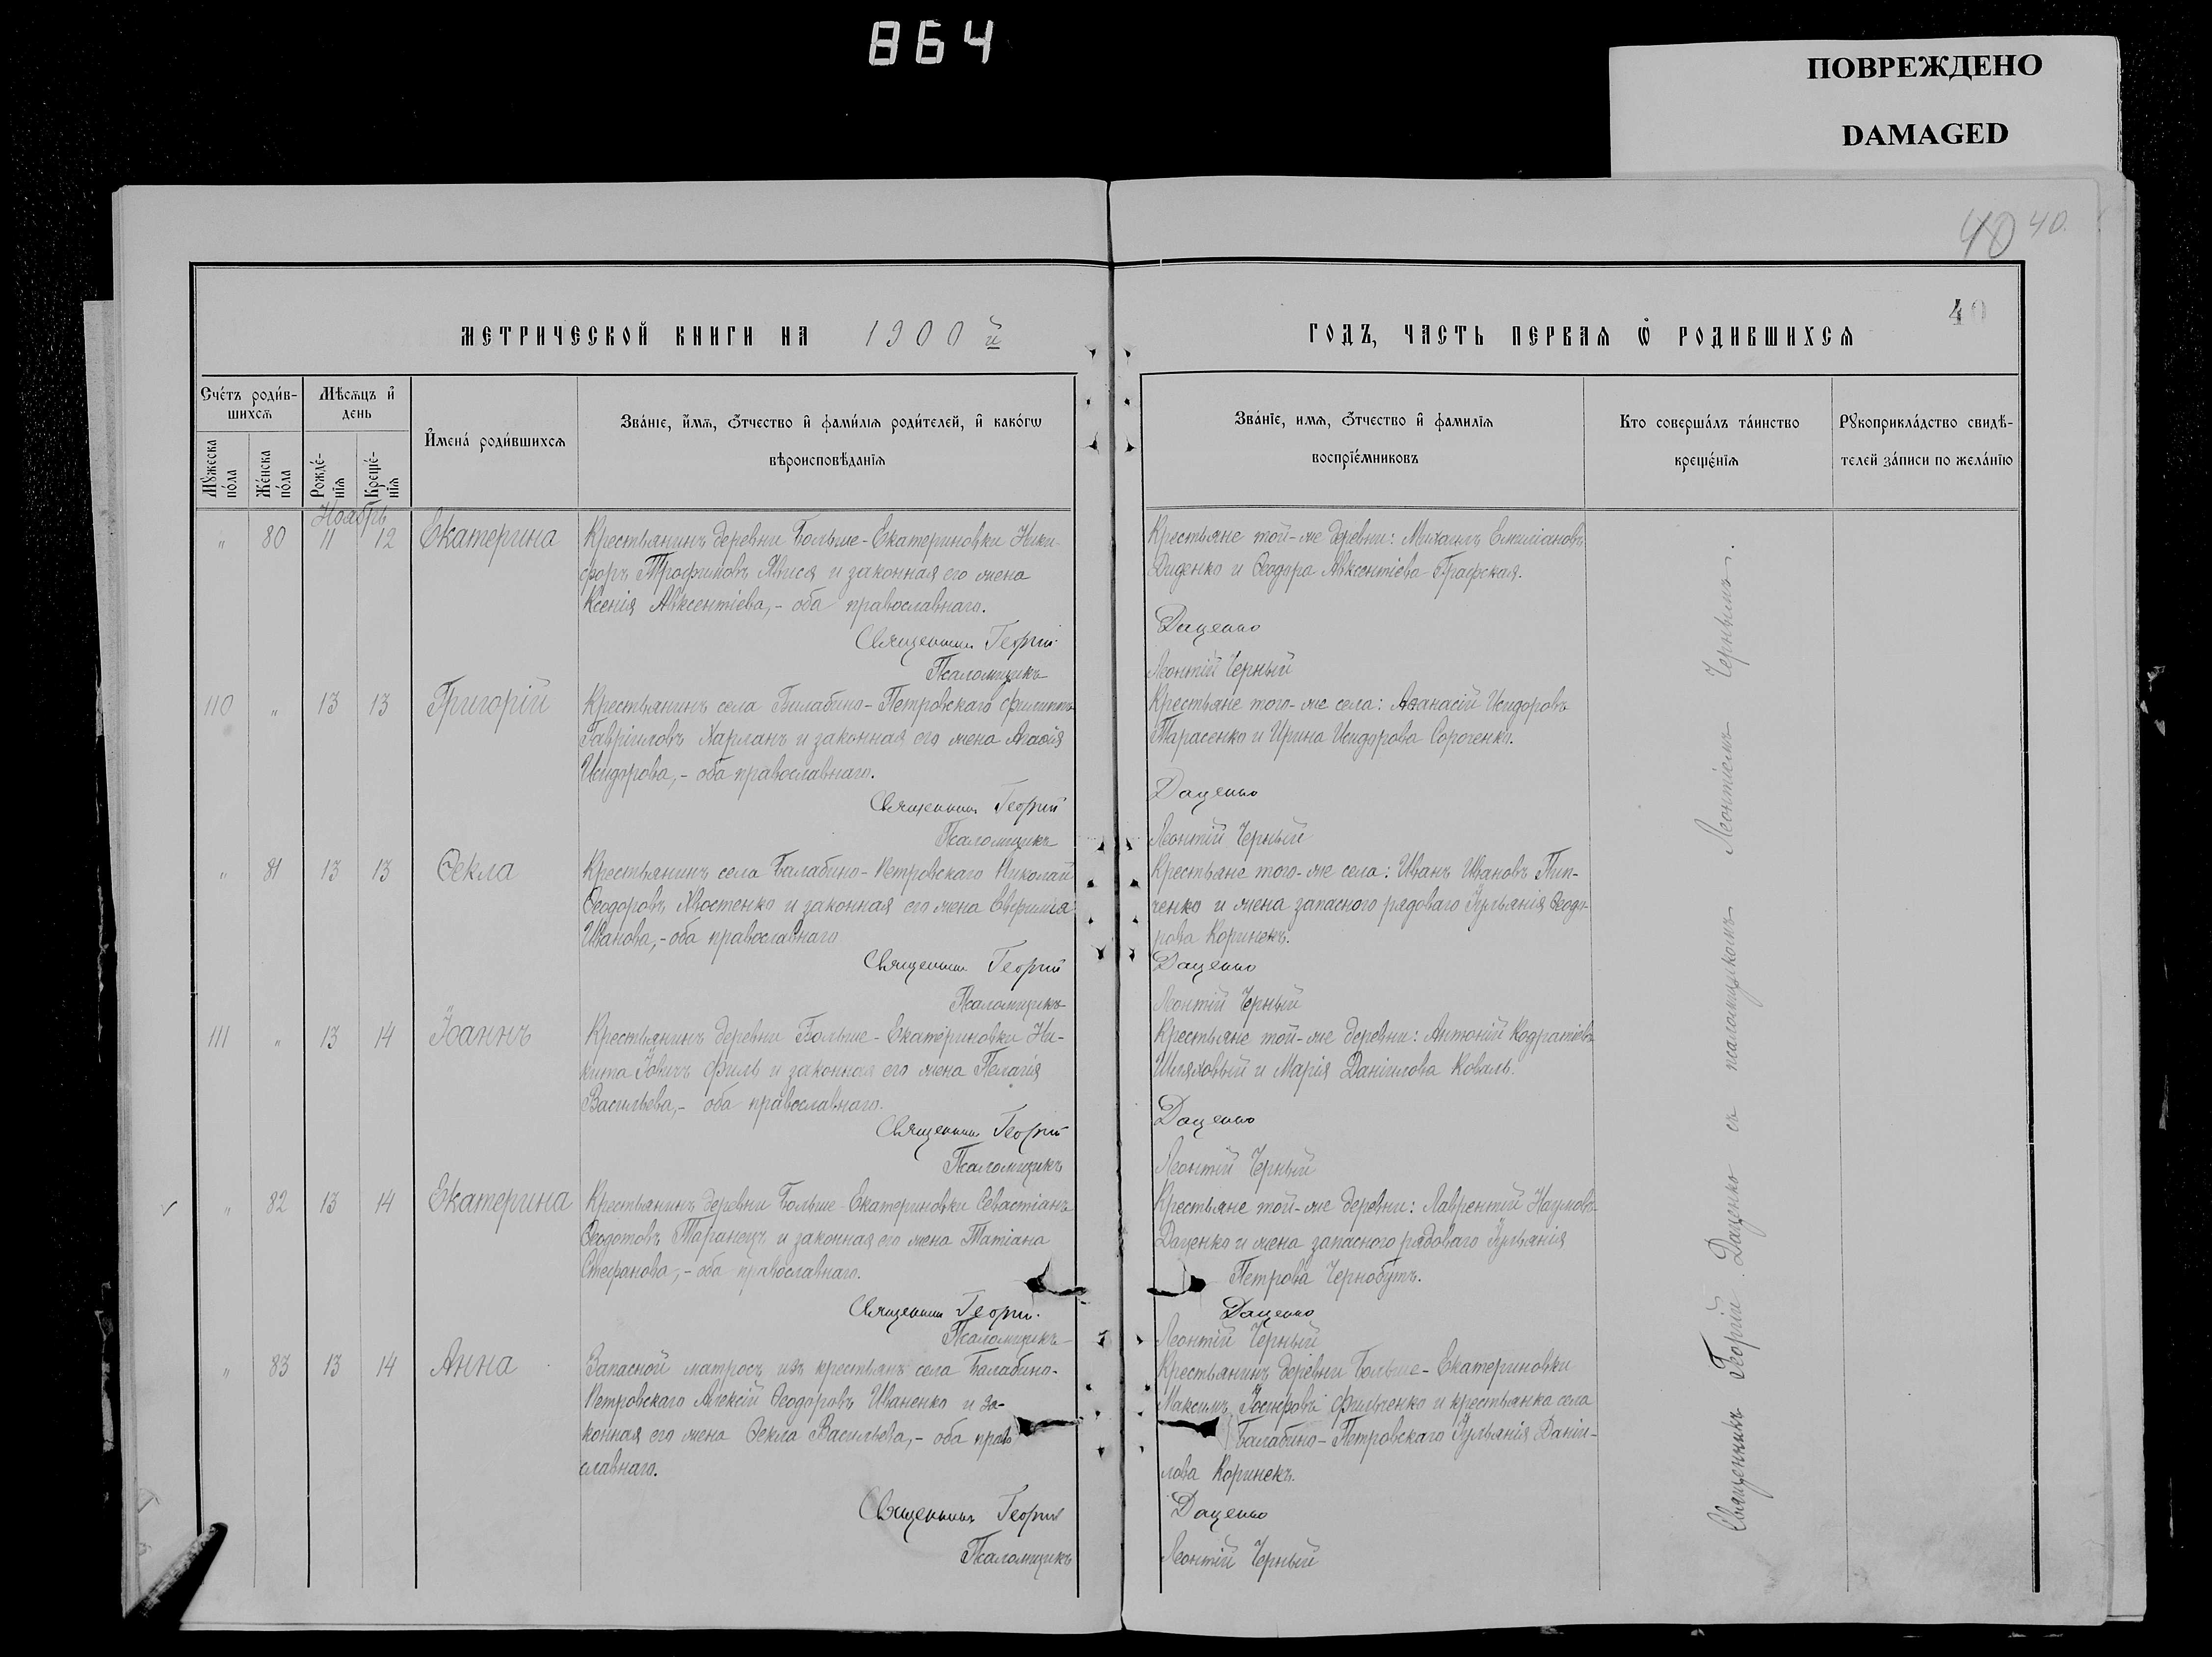 864
ПОВРЕЖДЕНО
DAMAGED
40 40.
40
МЕТРИЧЕСКОЙ КНИГИ НА 1900 й
ГОДЪ, ЧАСТЬ ПЕРВАЯ Ѡ РОДИВШИХСЯ
Счетъ родив-
шихся
Мѣсяцъ и
день
Мужеска
пола
Женска
пола
Рожде-
нія
Креще-
нія
Имена родившихся
Званіе, имя, отчество и фамилія родителей, и какогѡ
вѣроисповѣданія
Званіе, имя, отчество и фамилія
воспріемниковъ
Кто совершалъ таинство
крещенія
Рукоприкладство свидѣ-
телей записи по желанію
Ноябрь
" 80 11 12 Екатерина
Крестьянинъ деревни Больше-Екатериновки Ники-
форъ Трофимовъ и законная его жена
Ксенія Авксентіева, - оба православнаго.
Священникъ Георгій
Псаломщикъ
Крестьяне той-же деревни: Михаилъ Емиліановъ
Диденко и Ѳеодора Авксентіева Графская.
Даценко
Леонтій Черный
110 " 13 13 Григорій
Крестьянинъ села Балабино-Петровскаго Филиппъ
Гавріиловъ Харланъ и законная его жена Агаѳія
Исидорова, - оба православнаго.
Священникъ Георгій
Псаломщикъ
Крестьяне того-же села: Аѳанасій Исидоровъ
Тарасенко и Ирина Исидорова Сороченко.
Даценко
Леонтій Черный
" 81 13 13 Ѳекла
Крестьянинъ села Балабино-Петровскаго Николай
Ѳеодоровъ Костенко и законная его жена Евфимія
Иванова, - оба православнаго
Священникъ Георгій
Псаломщикъ
Крестьяне того-же села: Иванъ Ивановъ Пип-
ченко и жена запасного рядоваго Іуліанія Ѳеодо-
рова Коринекъ.
Даценко
Леонтій Черный
111 " 13 14 Іоаннъ
Крестьянинъ деревни Больше-Екатериновки Ни-
кита Іовичъ Филь и законная его жена Пелагія
Васильева, - оба православнаго.
Священникъ Георгій
Псаломщикъ
Крестьяне той-же деревни: Антоній Кодратіевъ
Шляховый и Марія Даніилова Коваль.
Даценко
Леонтій Черный
" 82 13 14 Екатерина
Крестьянинъ деревни Больше-Екатериновки Севастіанъ
Ѳеодотовъ Таранецъ и законная его жена Татіана
Стефанова, - оба православнаго.
Священникъ Георгій
Псаломщикъ
Крестьяне той-же деревни: Лаврентій Наумовъ
Даценко и жена запасного рядоваго Іуліанія
Петрова Чернобутъ.
Даценко
Леонтій Черный
" 83 13 14 Анна
Запасной матросъ изъ крестьянъ села Балабино-
Петровскаго Алексій Ѳеодоровъ Иваненко и за-
конная его жена Ѳекла Васильева, - оба право
славнаго.
Священникъ Георгій
Псаломщикъ
Крестьянинъ деревни Больше-Екатериновки
Максимъ Іосифовъ Фильченко и крестьянка села
Балабино-Петровскаго Іуліанія Даніи-
лова Коринекъ.
Даценко
Леонтій Черный
Священникъ Георгій Даценко съ псаломщикомъ Леонтіемъ Чернымъ.